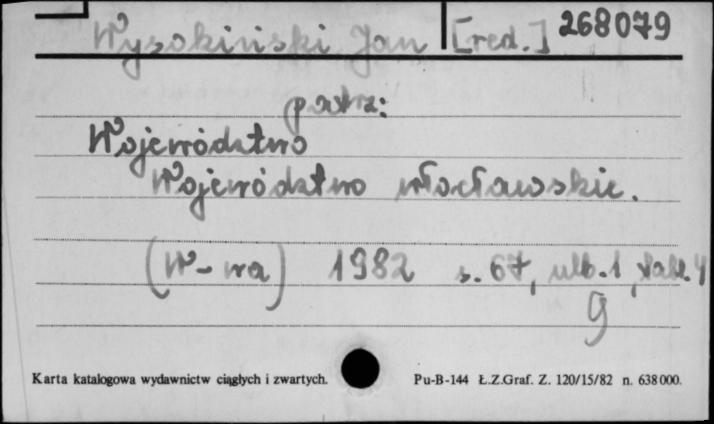 Wysokiński Jan [red.] 268079
patrz:
Województwo
Województwo włocławskie.
(W-wa) 1982 s. 67, ulb. 1, tabl. 4
g
Karta katalogowa wydawnictw ciągłych i zwartych. Pu-B-144 Ł.Z.Graf. Z. 120/15/82 n. 638000.